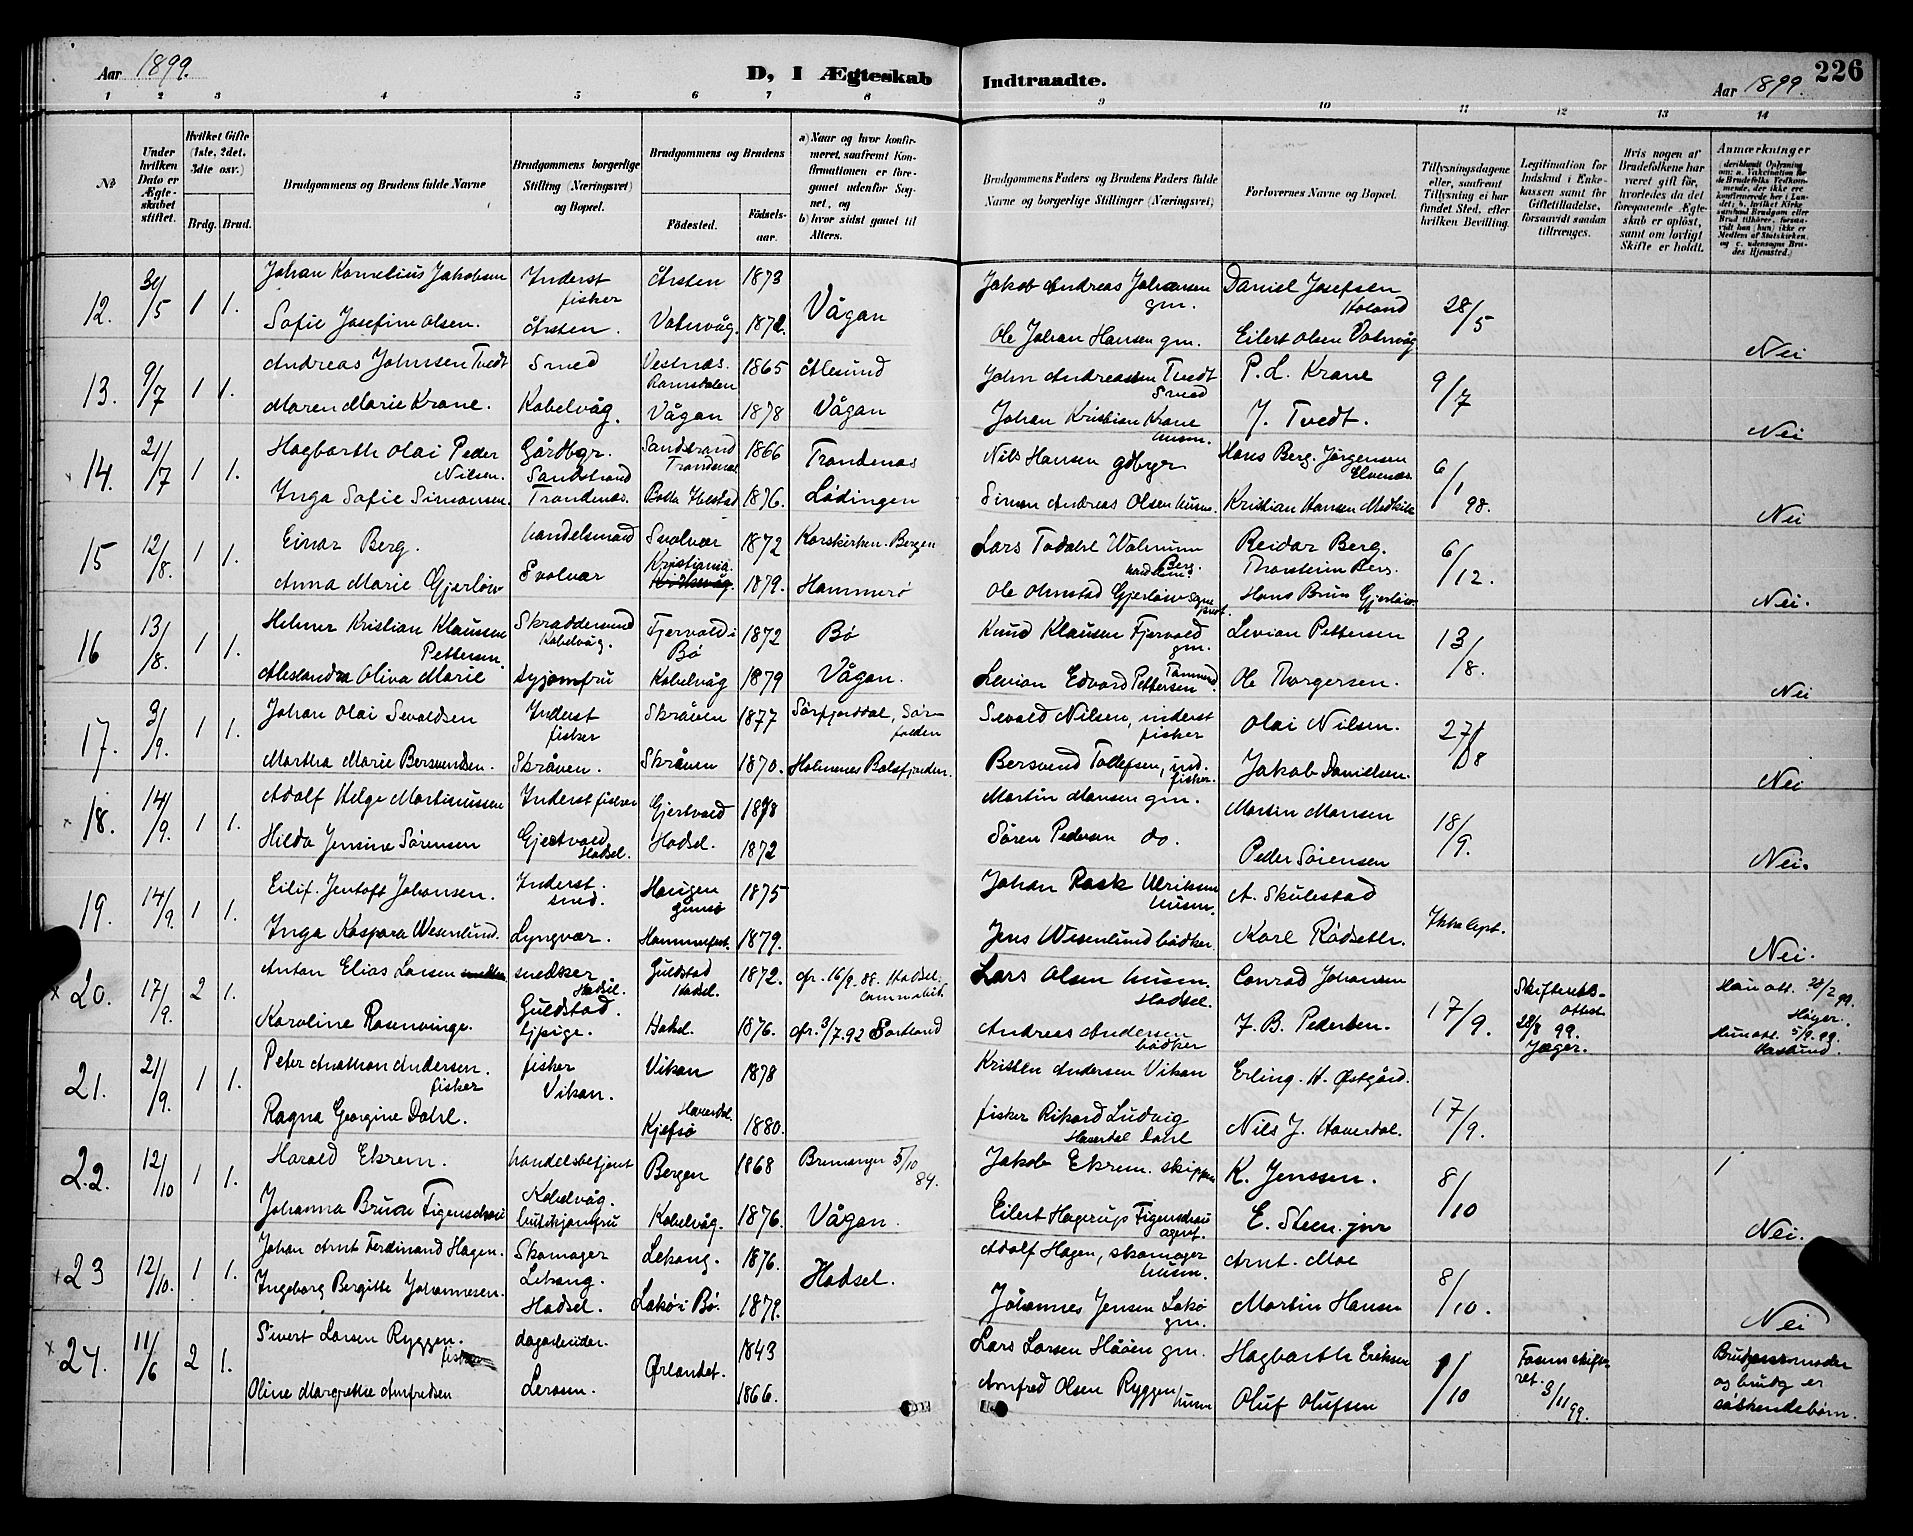 Aar 1899.
D, I Ægteskab
Indtraadte.
Aar 1899.
226
1 2 3 4 5 6 7 8
9 10 11 12 13 14
No
Under hvilken Dato er Ægteskabet stiftet.
Hvilket Gifte (1ste, 2det, 3die osv.)
Brdg. Brud.
Brudgommens og Brudens fulde Navne
Brudgommens borgerlige Stilling (Næringsvei) og Bopæl.
Brudgommens og Brudens
Fødested.
Fødselsaar.
a) Naar og hvor konfirmeret, saafremt Konfirmationen er foregaaet udenfor Sognet, og
b) hvor sidst gaaet til Alters.
Brudgommens Faders og Brudens Faders fulde Navne og borgerlige Stillinger (Næringsvei)
Forlovernes Navne og Bopæl.
Tillysningsdagene eller, saafremt Tillysning ei har fundet Sted, efter hvilken Bevilling.
Legitimation for Indskud i Enkekassen samt for Giftetilladelse, forsaavidt saadan tiltrænges.
Hvis nogen af Brudefolkene har været gift før, hvorledes da det foregaaende Ægteskab er opløst, samt om lovligt Skifte er holdt.
Anmærkninger
12. 30/5 1 1. Johan Kornelius Jakobsen Inderst fisker Årsten 1873 Jakob Andreas Johansen gm. Daniel Josefsen Holand 28/5
Sofie Josefine Olsen. Årsten. Votnvåg. 1872. Vågan Ole Johan Hansen gm. Eilert Olsen Votnvåg Nei
13. 9/7 1 1. Andreas Johnsen Tvedt Smed Vestnæs. Romsdalen 1865 Ålesund John Andreassen Tvedt Smed P. L. Krane 9/7
Maren Marie Krane. Kabelvåg. Vågan 1878 Vågan Johan Kristian Krane husm. J. Tvedt. Nei
14. 21/7 1 1. Hagbarth Olai Peder Nilsen. Gårdbgr. Sandstrand Sandstrand Trondenæs 1866 Trondenæs Nils Hansen gdbrger Hans Berg. Jørgensen Elvenæs. 6/1 98.
Inga Sofie Simonsen. Trondenæs. 1876. Lødingen Simon Andreas Olsen husm. Kristian Hansen Nei
15 12/8. 1 1. Einar Berg. handelsmand Svolvær 1872 Korskirken. Bergen Lars Todahl Walnum Berg. handelsm. Reidar Berg. Thorstein Berg. 6/12.
Anna Marie Gjerløw Svolvær Kristiania. 1879. Hammerø Ole Olmstad Gjerløw sogneprest. Hans Brun Gjerløw. Nei.
16 13/8. 1 1. Helmer Kristian Klausen Skræddersvend Kabelvåg. Fjervold i Bø 1872 Bø Knud Klausen Fjervold gm. Levian Pettersen 13/8.
Alexandra Oliva Marie Pettersen. syjomfru Kabelvåg 1879 Vågan. Levian Edvard Pettersen Tømmerm. Ole Thorgersen. Nei
17. 3/9. 1 1. Johan Olai Sevaldsen Inderst fisker Skråven 1877 Sørfjorddal, Sørfolden Sevald Nilsen, inderst fisker Olai Nilsen. 27/8
Martha Marie Bersvendsen. Skråven. Skråven 1870. Holmenes Balsfjorden. Bersvend Tollefsen, ind. fisker. Jakob Danielsen. Nei
18. 14/9. 1 1. Adolf Helge Martinussen Inderst fisker Gjertvold 1878 Martin Monsen gm. Martin Monsen 18/9.
Hilda Jensine Sørensen Gjertvold Hadsel. Hadsel. 1872 Søren Pedersen do. Peder Sørensen Nei.
19. 14/9. 1 1. Eilif. Jentoft Johansen. Inderst. smed. Haugen Gimsø 1875 Johan Rask Ulriksen husm. A. Skulestad
Inga Kaspara Wesenlund. Lyngvær. Hammerfest. 1879. Jens Wesenlund bødker. Karl Rødseth. Ikke lyst. Nei.
20. 17/9. 2 1. Anton Elias Larsen snedker Hadsel. Guldstad Hadsel. 1872. cfr. 16/9. 88. Hadsel. Lars Olsen husm. Hadsel. Conrad Johansen Skifteretsattest 28/8 99. Jæger.
Karoline Rosenvinge. Guldstad. tjpige. Hadsel. 1876. cfr. 3/7. 92 Sortland Andreas Andersen bødker J. B. Pedersen. 17/9. Hun att. 5/9. 99.
21. 21/9. 1 1. Peter Anathon Andersen. fisker fisker Vikan. Vikan 1878 Kristen Andersen Vikan Erling. H. Østgård.
Ragna Georgine Dahl. Haverdal. Kjefsø 1880. fisker Rikard Ludvig Haverdal Dahl Nils J. Haverdal. 17/9.
22. 12/10 1 1. Harald Ekrem. handelsbetjent Bergen 1868 Bremanger 5/10 84. Jakob Ekrem. skipper K. Jenssen. 8/10
Johanna Bruun Figenschau Kabelvåg. butikjomfru Kabelvåg. 1876. Vågan. Eilert Hagerup Figenschau agent. E. Steen. jnr Nei.
23 12/10. 1 1. Johan Arnt Ferdinand Hagen. Skomager Lekang. 1876. Adolf Hagen, skomager husm. Arnt. Moe 8/10.
Ingeborg Bergitte Johannesen. Lekang. Hadsel. Lakø i Bø. 1879. Hadsel. Johannes Jensen Lakø gm. Martin Hansen Nei
24. 11/6 2 1. Sivert Larsen Ryggen. dagarbeider. Ørlandet. 1843 Lars Larsen Håøen gm. Hagbarth Eriksen 1/10 Fosens skifteret. 3/11 99. Brudens moder og brudg er søskendebørn.
Oline Margrethe Arnfredsen Lerosen. 1866. Arnfred Olsen Ryggen husm Oluf Olufsen